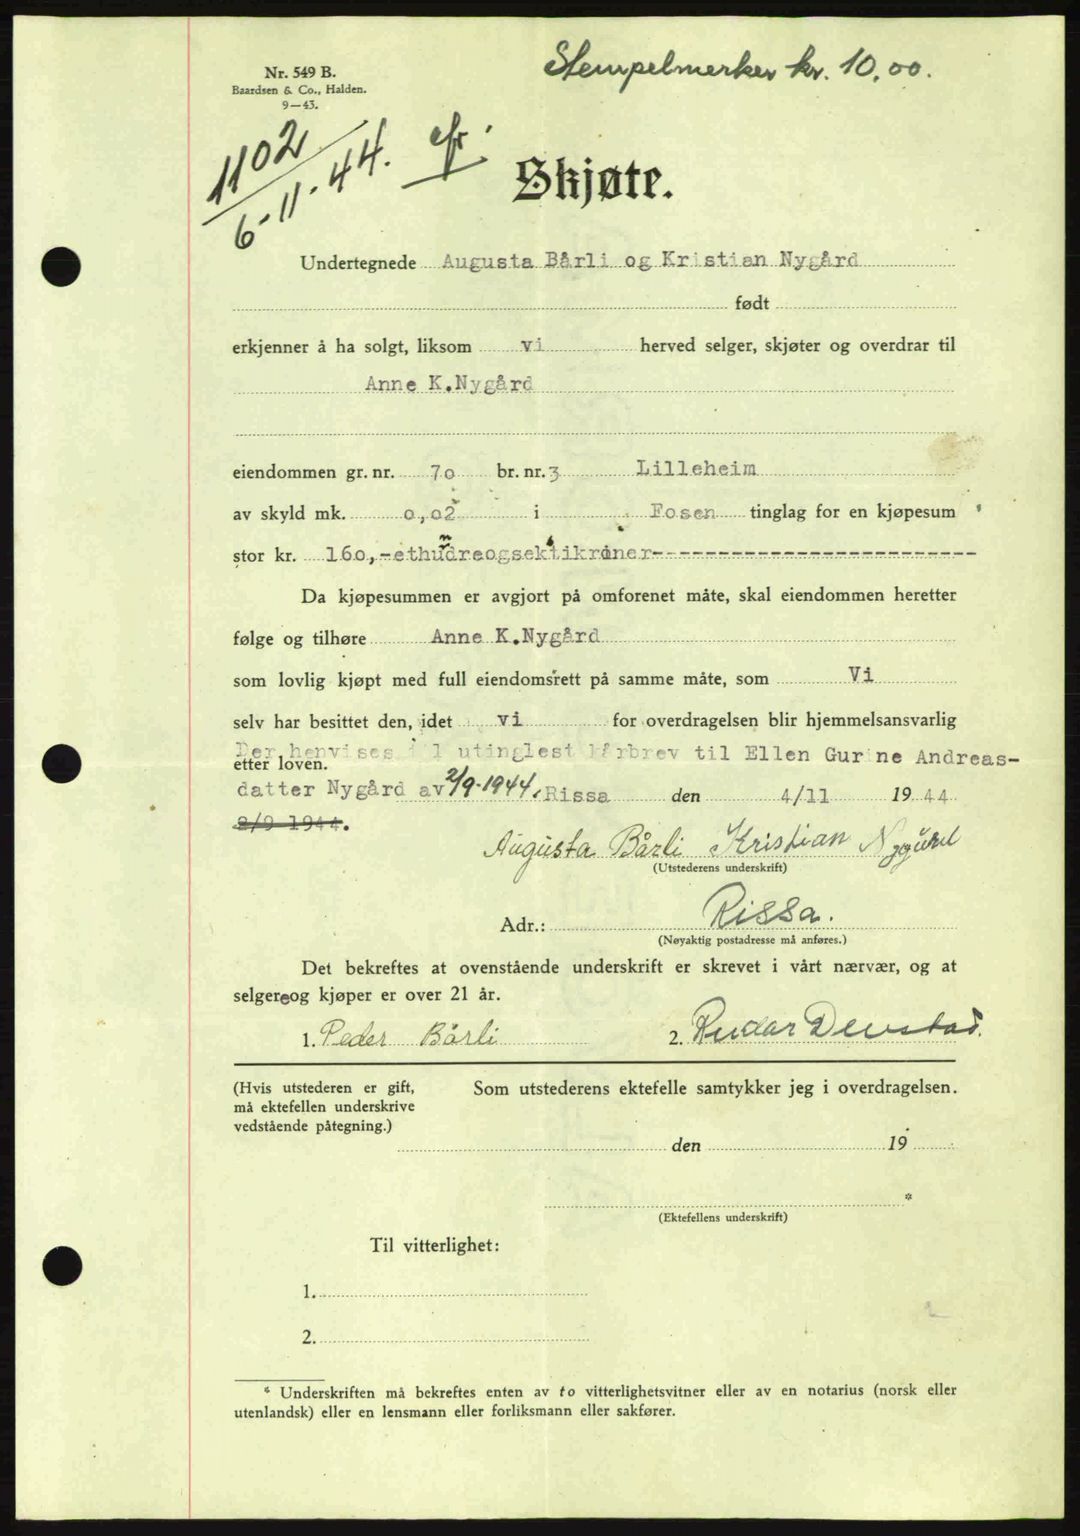 Stempelmerker kr. 10.00.
Nr. 549 B.
Baardsen & Co., Halden.
9—43.
1102
6-11-44.
Skjøte.
Undertegnede Augusta Bårli og Kristian Nygård
født
erkjenner å ha solgt, liksom vi herved selger, skjøter og overdrar til
Anne K.Nygård
eiendommen gr. nr. 70 br. nr. 3 Lilleheim
av skyld mk. 0,02 i Fosen tinglag for en kjøpesum
stor kr. 160,-ethundreogsekstikroner-------------------------
Da kjøpesummen er avgjort på omforenet måte, skal eiendommen heretter
følge og tilhøre Anne K.Nygård
som lovlig kjøpt med full eiendomsrett på samme måte, som Vi
selv har besittet den, idet vi for overdragelsen blir hjemmelsansvarlig
etter loven. Der henvises til utinglest kårbrev til Ellen Gurine Andreas-
datter Nygård av 2/9-1944. Rissa den 4/11 1944
2/9 1944.
Augusta Bårli Kristian Nygård
(Utstederens underskrift)
Adr.: Rissa.
(Nøyaktig postadresse må anføres.)
Det bekreftes at ovenstående underskrift er skrevet i vårt nærvær, og at
selgere og kjøper er over 21 år.
1. Peder Bårli 2. Rudar
(Hvis utstederen er gift,
må ektefellen underskrive
vedstående påtegning.)
Som utstederens ektefelle samtykker jeg i overdragelsen.
den 19
*
(Ektefellens underskrift)
Til vitterlighet:
1.
2.
* Underskriften må bekreftes enten av to vitterlighetsvitner eller av en notarius (norsk eller
utenlandsk) eller en lensmann eller forliksmann eller sakfører.